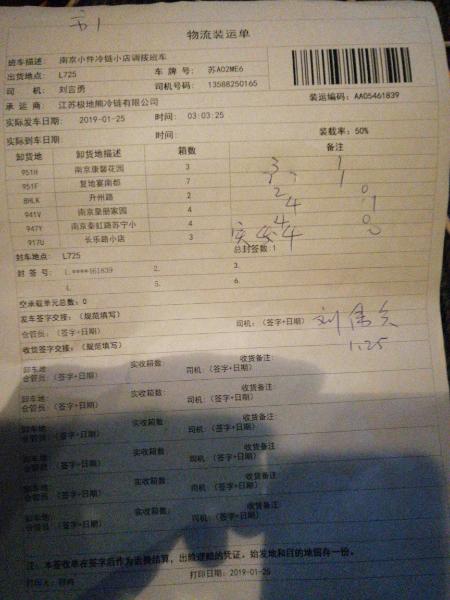 物流装运单
班车描述: 南京小件冷链小店调拨班车
出货地点: L725 车 牌 号: 苏A02ME6
司 机: 刘言勇 司机号码: 13588250165
承 运 商: 江苏极地熊冷链有限公司 装运编码: AA05461839
实际发车日期: 2019-01-25 时间: 03:03:25
实际到车日期: 时间: 装载率: 50%
卸货地 卸货地描述 箱数 备注
951H 南京康馨花园 3 3 1
951F 复地宴南都 7 7 1
8HLK 升州路 2 2 0
941V 南京皇册家园 4 4 1
947Y 南京秦虹路苏宁小 4 4 0
917U 长乐路小店 3 实发4
总封签数:1
封车地点: L725
封 签 号: 1.****461839 2. 3.
4. 5. 6.
空承载单元总数: 0
发车签字交接: (规范填写)
仓管员: (签字+日期) 司机: (签字+日期) 刘
1.25
收货签字交接: (规范填写)
卸车地 实收箱数: 收货备注:
仓管员: (签字+日期) 司机: (签字+日期)
卸车地 实收箱数: 收货备注:
仓管员: (签字+日期) 司机: (签字+日期)
卸车地 实收箱数: 收货备注:
仓管员: (签字+日期) 司机: (签字+日期)
卸车地 实收箱数: 收货备注:
仓管员: (签字+日期) 司机: (签字+日期)
卸车地 实收箱数: 收货备注:
仓管员: (签字+日期) 司机: (签字+日期)
注: 本签收单在签字后作为运费结算, 出险理赔的凭证, 始发地和目的地留存一份。
打印人: 打印日期: 2019-01-25